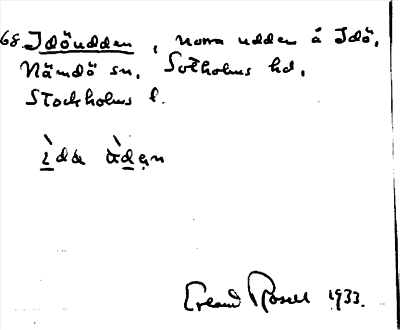 68 Idöudden, norra udden å Idö,
Nämdö sn, Sotholms hd,
Stockholms l.
ìdœ ùdən
Erland Rosell 1933.